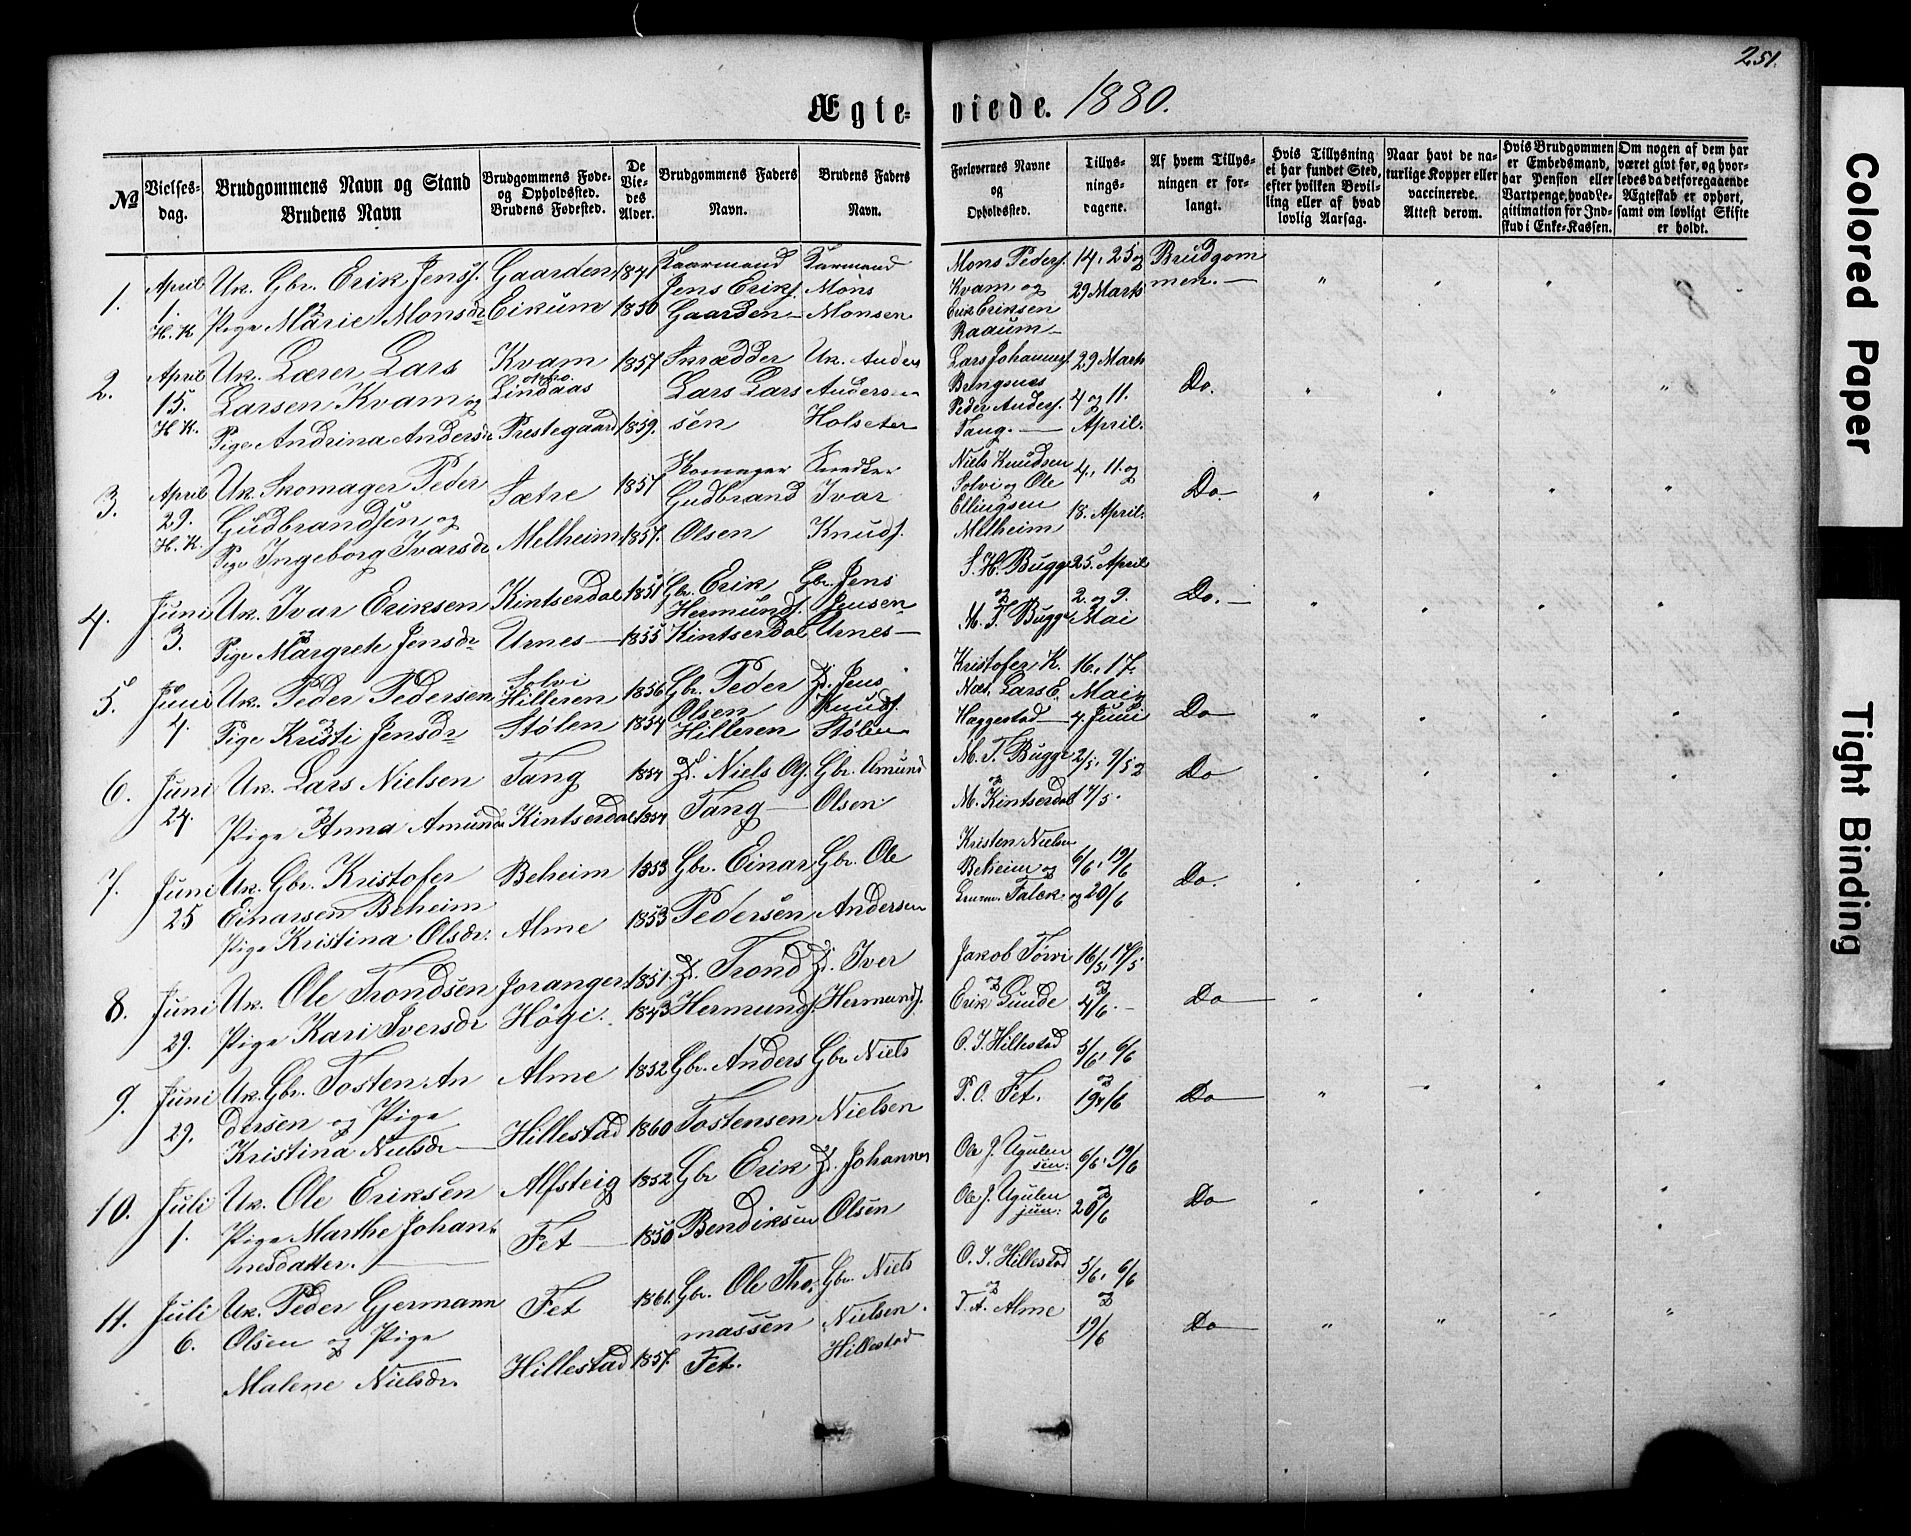 251.
Ægte- viede. 1880.
№
Vielses-
dag.
Brudgommens Navn og Stand
Brudens Navn
Brudgommens Føde-
og Opholdssted.
Brudens Fødested.
De
Vie-
des
Alder.
Brudgommens Faders
Navn.
Brudens Faders
Navn.
Forlovernes Navne
og
Opholdssted.
Tillys-
nings-
dagene.
Af hvem Tillys-
ningen er for-
langt.
Hvis Tillysning
ei har fundet Sted,
efter hvilken Bevil-
ling eller af hvad
lovlig Aarsag.
Naar havt de na-
turlige Kopper eller
vaccinerede.
Attest derom.
Hvis Brudgommen
er Embedsmand,
har Pension eller
Vartpenge, hvad Le-
gitimation for Ind-
skud i Enke-Kassen.
Om nogen af dem har
været givt før, og hvor-
ledes da det foregaaende
Ægteskab er ophørt,
samt om lovligt Skifte
er holdt.
1.
April
1.
H. K
Uk. Gbr. Erik Jensf.
Pige Marie Monsdr
Gaarden
Eikum
1841
1850
Kaarmand
Jens Erikf.
Gaarden
Karmand
Mons
Monsen
Mons Pedersf.
Kvam og
Erik Eriksen
Raaum
14, 25 og
29 Marts
Brudgom
men.
2.
April
15.
H. K.
Uk. Lærer Lars
Larsen Kvam og
Pige Andrina Andersdr
Kvam
Lindaas
Prestegaard
1857
1859.
Skrædder
Lars Lars
sen
Uk. Anders
Andersen
Holseter
Lars Johannesf.
Bringsnes
Peder Andersf.
Tang.
29 Marts
4 og 11.
April.
Do.
3.
April
29.
H. K.
Uk. Skomager Peder
Gudbrandsen og
Pige Ingeborg Ivarsdr
Sætre
Melheim
1857
1857.
Skomager
Gudbrand
Olsen
Snedker
Ivar
Knudf.
Niels Knudsen
Solvi og Ole
Ellingsen
Melheim
4, 11. og
18. April.
Do
4.
Juni
3.
Uk. Ivar Eriksen
Pige Margrete Jensdr
Kintserdal
Urnes
1851
1855
Gbr. Erik
Hermundf.
Kintserdal
Gbr. Jens
Jensen
Urnes
S. H. Bugge
og
M. T. Bugge
25. April
2. og 9.
Mai
Do.
5.
Juni
4.
Uk. Peder Pedersen
og
Pige Kristi Jensdr
Solvi
Hilleren
Stølen
1856
1854
Gbr. Peder
Olsen
Hilleren
Jens
Knudf.
Stølen
Kristofer K.
Næs. Lars E.
Haggestad
16, 17
Mai og
4 Juni
Do
6.
Juni
24.
Uk. Lars Nielsen
og
Pige Anna Amundsdr
Tang
Kintserdal
1854
1854
Niels Of.
Tang
Gbr. Amund
Olsen
M. T. Bugge
og
M. Kintserdal
2/5. 9/5 og
17/5.
Do
7.
Juni
25
Uk. Gbr. Kristofer
Einarsen Beheim
Pige Kristina Olsdr.
Beheim
Alme
1853
1853
Gbr. Einar
Pedersen
Gbr. Ole
Andersen
Kristen Nielsen
Beheim og
Falck
6/6, 19/6
og 20/6
Do.
8.
Juni
29.
Uk. Ole Trondsen
Pige Kari Iversdr
Joranger
Høgi.
1851.
1843
Trond
Hermundf.
Iver
Hermundf.
Jakob Tørvi
og
Erik Gunde
16/5, 17/5
og
4/6.
Do
9.
Juni
29.
Uk. Gbr. Tosten An
dersen og Pige
Kristina Nielsdr
Alme
Hillestad
1852
1860
Gbr. Anders
Tostensen
Gbr. Niels
Nielsen
O. I. Hillestad
P. O. Fet.
5/6, 6/6
og
19/6
Do
10.
Juli
1.
Uk. Ole Eriksen
Pige Marthe Johan
nesdatter.
Alfsteig
Fet
1852
1850
Gbr Erik
Bendiksen
Johannes
Olsen
Ole J. Ugulen
sen:
Ole J. Ugulen
jun:
6/6, 19/6
og
20/6
Do
11.
Juli
6.
Uk. Peder Gjermann
Olsen og Pige
Malene Nielsdr.
Fet
Hillestad
1861.
1857.
Gbr. Ole Tho
massen
Fet.
Gbr. Niels
Nielsen
Hillestad
O. I. Hillestad
og
T. A. Alme
5/6, 6/6
og
19/6
Do
Colored Paper
Tight Binding